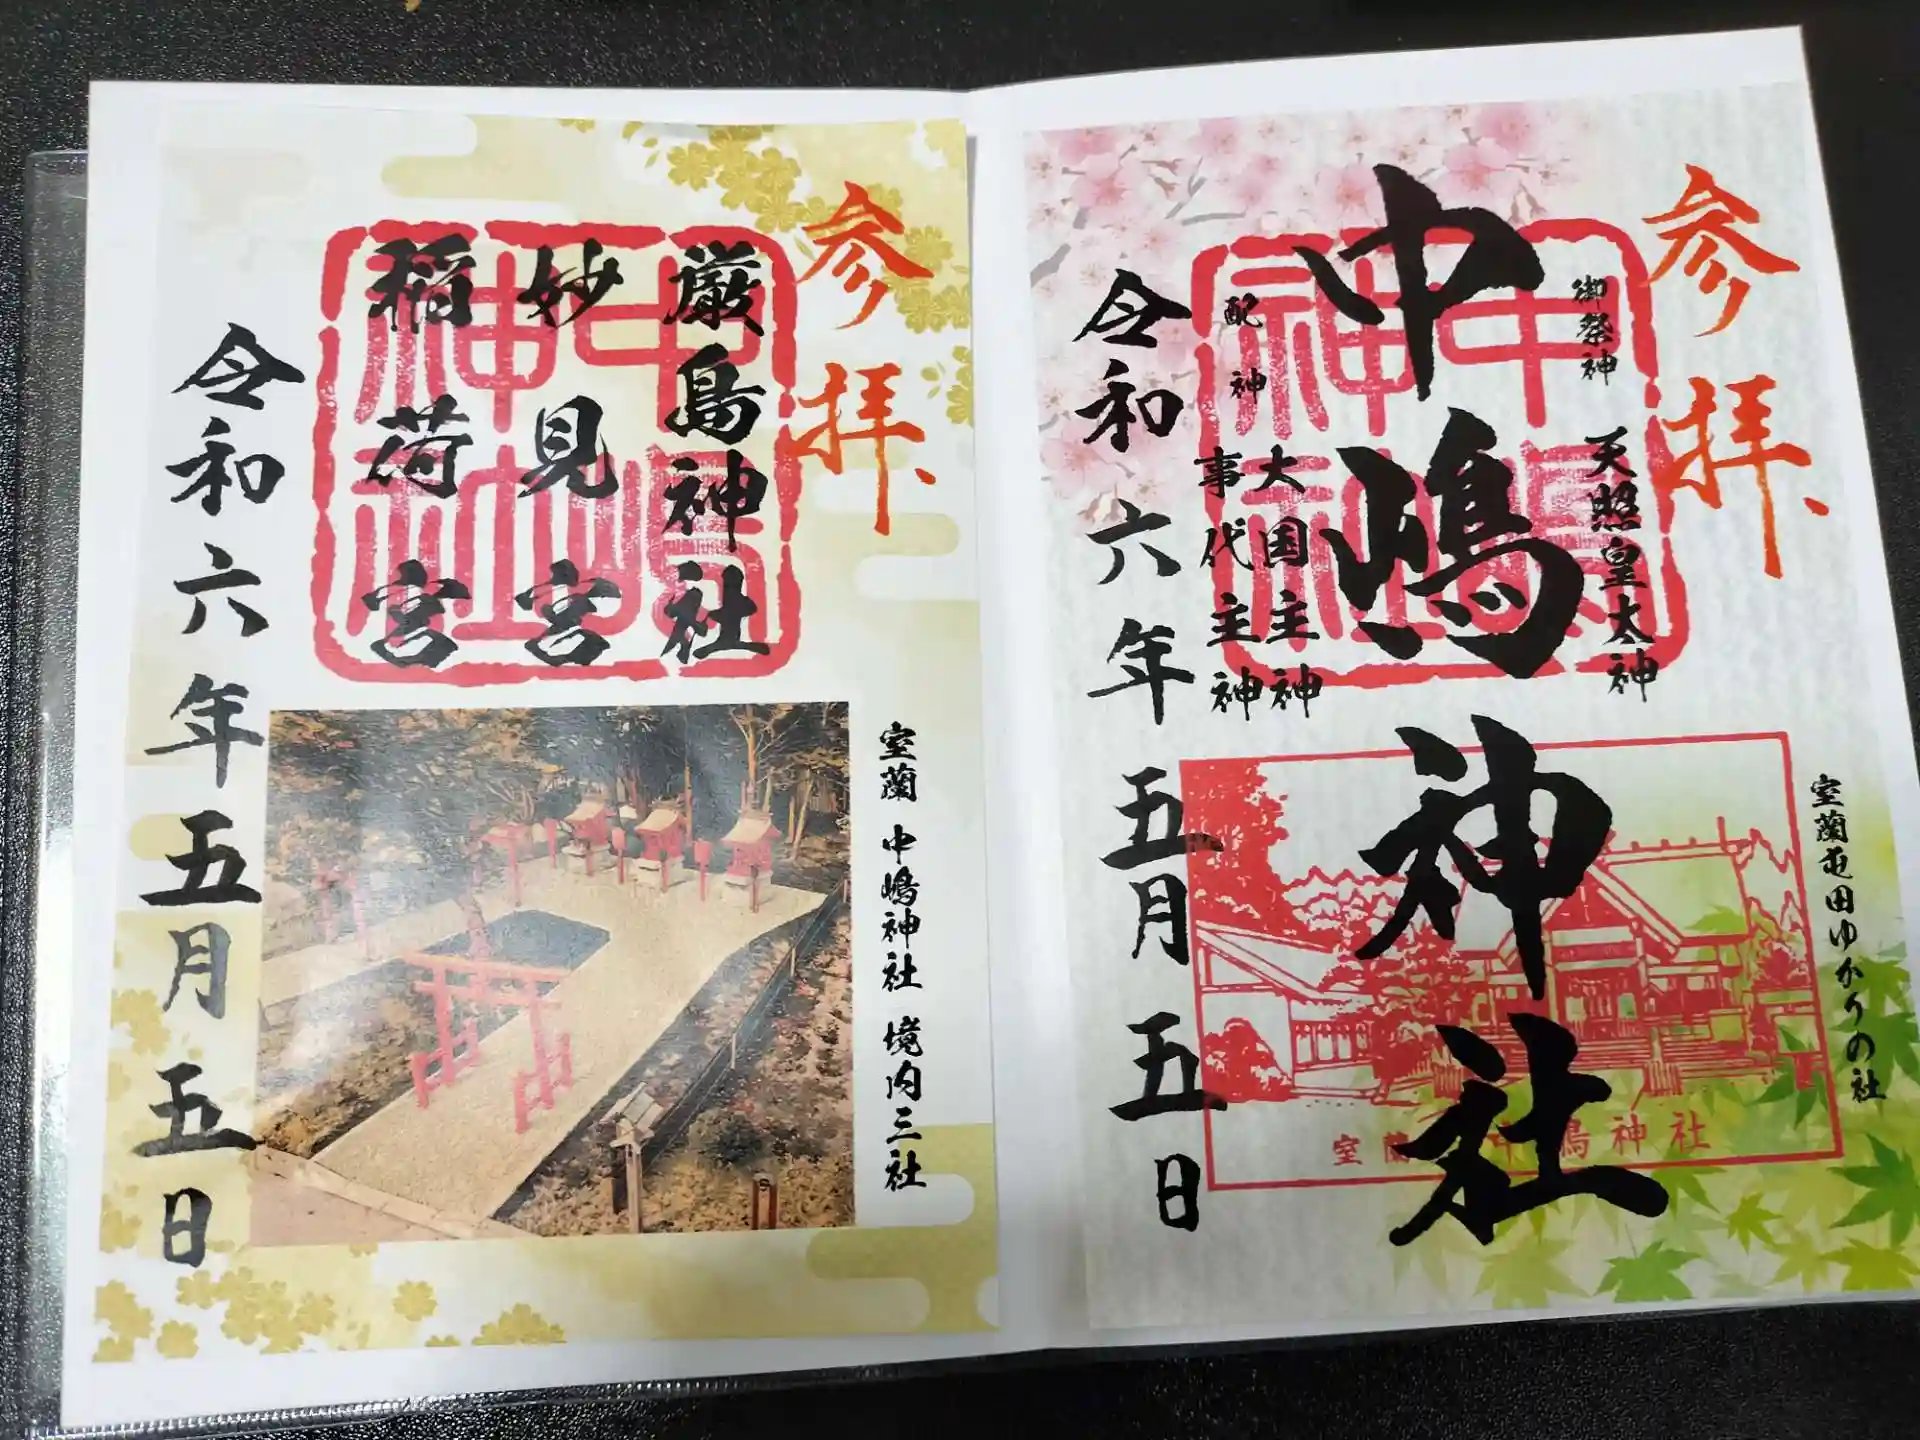 参拝
御祭神 天照皇大神
中嶋神社
配神 大国主神
事代主神
令和六年五月五日
室蘭屯田ゆかりの社
中嶋
神社
室蘭 中嶋神社
参拝
厳島神社
妙見宮
稲荷宮
令和六年五月五日
中嶋
神社
室蘭 中嶋神社 境内三社